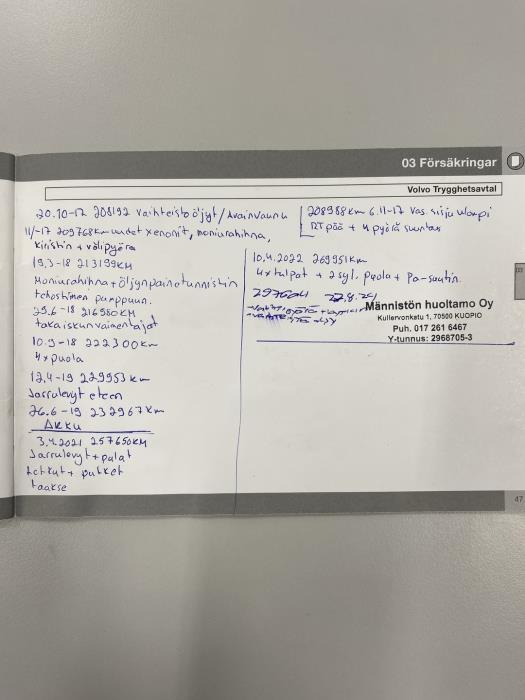 03 Försäkringar
Volvo Trygghetsavtal
20.10-17 208192 vaihteisto öljyt / Avainvaunu
11/-17 209768km uudet xenonit, moniurahihna,
kiristin + välipyörä
19.3-18 213199KM
Moniurahihna + öljynpainetunnistin
tehostimen pumppuun.
29.6-18 216980KM
takaiskunvaimentajat
10.9-18 222300km
4x puola
12.4-19 229953km
Jarrulevyt eteen
26.6-19 232967Km
AKKU
3.4.2021 257650KM
Jarrulevyt + palat
Letkut + putket
taakse
208988km 6.11-17 Vas. sisju ulompi
RT pää + 4 pyörä suuntaus
10.4.2022 269951km
4x tulpat + 2 syl. puola + Pa-suutin.
297604 22.8.24
Männistön huoltamo Oy
Kullervonkatu 1, 70500 KUOPIO
Puh. 017 261 6467
Y-tunnus: 2968705-3
47